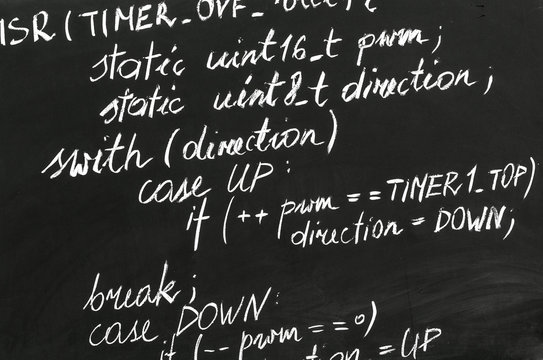 ISR(TIMER_OVF_
static uint16_t pwm;
static uint8_t direction;
swith (direction)
case UP:
if (++ pwm == TIMER1_TOP)
direction = DOWN;
break;
case DOWN:
if (-- pwm == 0)
= UP